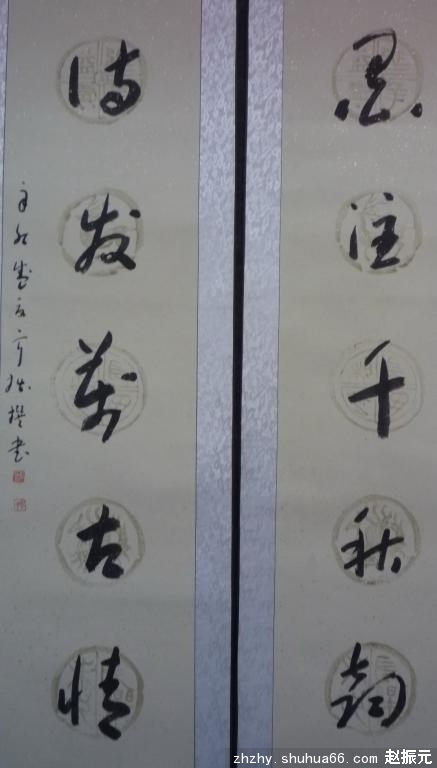 思注千秋韵
诗发萬古情
撰书
zhzhy.shuhua66.com 赵振元